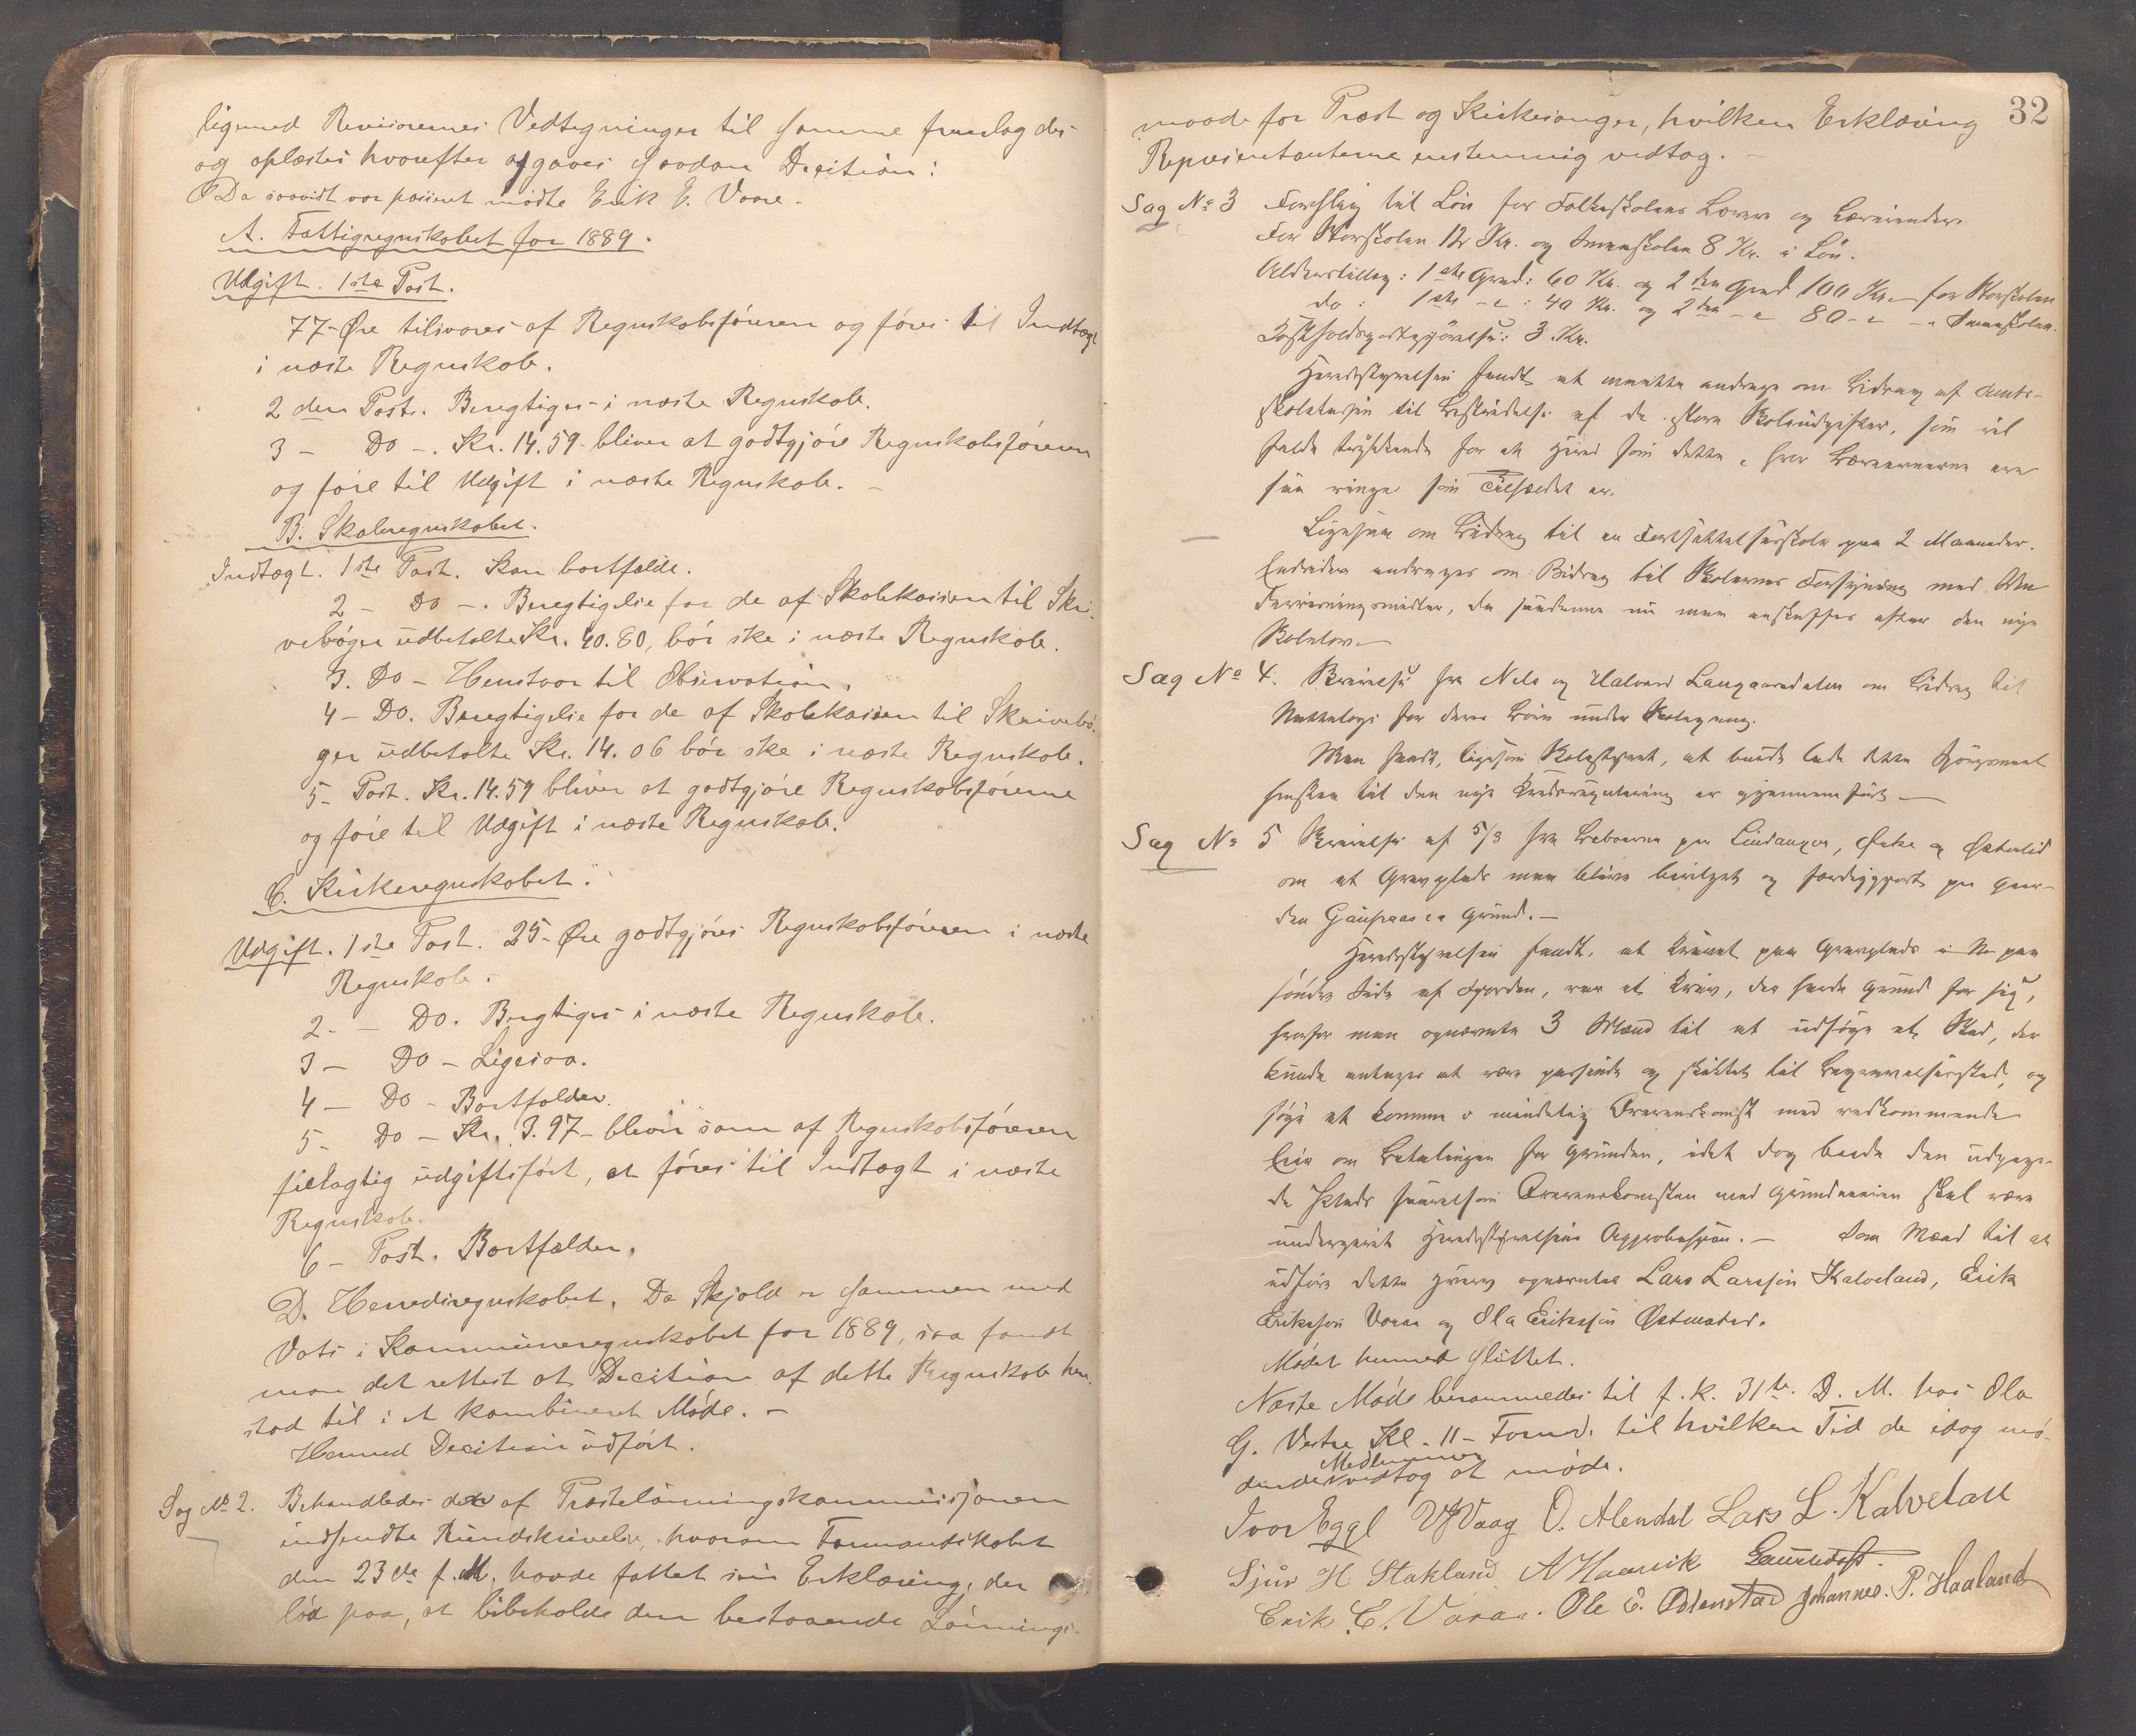 ligemed Revisorernes Vedtegninger til samme fremlagdes
og oplæstes hvorefter afgaves saadan Decision:
Da saavidt var passeret mødte Erik E. Vaare.
A. Fattigregnskabet for 1889.
Udgift. 1ste Post.
77 Øre tilsvares af Regnskabsføreren og føres til Indtægt
i næste Regnskab.
2 den Post. Beregtiges i næste Regnskab.
3 – Do –. Kr. 14.59 bliver at godtgjøre Regnskabsføreren
og føre til Udgift i næste Regnskab. –
B. Skoleregnskabet.
Indtægt. 1ste Post. Kan bortfalde.
2 – Do –. Beregtigelse for de af Skolekassen til Skri-
vebøger udbetalte Kr. 40.80, bør ske i næste Regnskab.
3. Do – Henstaar til Observation.
4 – Do. Beregtigelse for de af Skolekassen til Skrivebø-
ger udbetalte Kr. 14.06 bør ske i næste Regnskab.
5 – Post. Kr. 14.59 bliver at godtgjøre Regnskabsførerne
og føre til Udgift i næste Regnskab.
C. Kirkeregnskabet.
Udgift. 1ste Post. 25 Øre godtgjøres Regnskabsføreren i næste
Regnskab.
2 – Do. Bregtiges i næste Regnskab.
3 – Do – Ligesaa.
4 – Do – Bortfalder.
5 – Do – Kr. 3.97 – bliver som af Regnskabsføreren
feilagtig udgiftsført, at føres til Indtægt i næste
Regnskab.
6 – Post. Bortfalder.
D. Herredsregnskabet. Da Skjold er sammen med
Vats i Kommuneregnskabet for 1889, saa fandt
man det rettest at Decision af dette Regnskab hen-
stod til i et kombineret Møde. –
Hermed Decision udført.
Sag No 2. Behandledes den af Præstelønningskommissjonen
indsendte Rundskrivelse, hvorom Formandskabet
den 23de f. M. havde fattet sin Erklæring, der
lød paa, at bibeholde den bestaaende Lønnings-
32
maade for Præst og Kirkesanger, hvilken Erklæring
Repræsentanterne enstemmig vedtog. –
Sag No 3 Forslag til Løn for Folkeskolens Lærere og Lærerinder.
For Storskolen 12 Kr. og Smaaskolen 8 Kr. i Løn.
Alderstillæg: 1ste Grad: 60 Kr. og 2den Grad 100 Kr. – for Storskolen
do : 1ste –"– : 40 Kr. og 2den –"– 80 –"– –"– Smaaskolen.
Kostholdsgodtgjørelse: 3 Kr.
Herredsstyrelsen fandt at maatte andrage om Bidrag af Amts-
skolekassen til Bestridelse af de store Skoleudgifter, som vil
falde trykkende for et Herred som dette, hvor Læreevnerne ere
saa ringe som Tilfældet er.
Ligesaa om Bidrag til en Fortsættelsesskole paa 2 Maaneder.
Endvidere andrages om Bidrag til Skolernes Forsyning med
Undervisningsmidler, da saadanne nu maa anskaffes efter den nye
Skolelov. –
Sag No 4. Skrivelse fra Nils og Halvard Langaardalen om Bidrag til
Nattelogi for deres Børn under Skolegang.
Man fandt, ligesom Skolestyret, at burde lade dette Spørgsmaal
henstaa til den nye Kredsregulering er gjennemført –
Sag No 5 Skrivelse af 5/3 fra Beboerne paa Lindanger, Øvke og Østerlid
om at Gravplads maa blive bevilget og færdiggjort paa Gaar-
den Gaupaas's Grund. –
Herredsstyrelsen fandt, at Kravet paa Gravplads paa
søndre Side af Fjorden, var et Krav, der havde Grund for sig,
hvorfor man opnævnte 3 Mænd til at udsøge et Sted, der
kunde antages at være passende og skikket til Begravelsessted, og
søge at komme i mindelig Overenskomst med vedkommende
Eier om Betalingen for Grunden, idet dog baade den udpege-
de Plads saavelsom Overenskomsten med Grundeieren skal være
undergivet Herredsstyrelsens Approbasjon. – Som Mænd til at
udføre dette Hverv opnævntes Lars Larssøn Kalveland, Erik
Erikssøn Vaare og Ola Erikssøn Østenstad.
Mødet hermed sluttet.
Næste Møde berammedes til f. k. 31te D. M. hos Ola
G. Vestre Kl. 11 – Formd. til hvilken Tid de idag mø-
dende Medlemmer vedtog at møde.
Ivar Eggl V Vaag O. Alendal Lars L. Kalvelan
Sjur H Stakland A Haavik
Erik E. Vaare. Ole E. Ødlenstad Johannes. P. Haaland